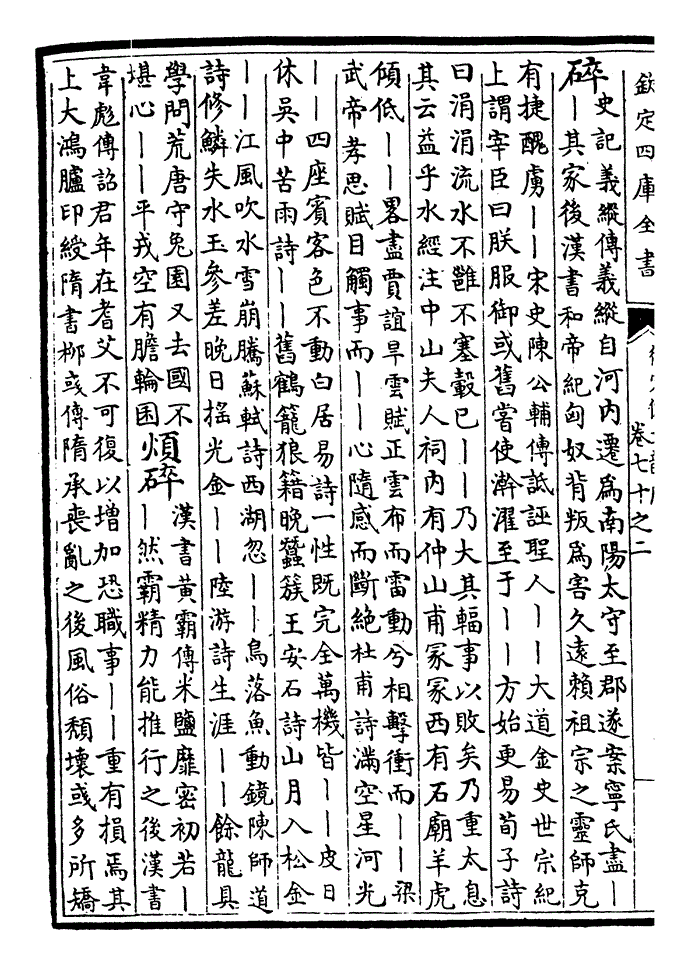 欽定四庫全書
卷七十之二
碎
史記義縱傳義縱自河內遷為南陽太守至郡遂案寧氏盡丨
丨其家後漢書和帝紀匈奴背叛為害久遠賴祖宗之靈師克
有捷醜虜丨丨宋史陳公輔傳詆誣聖人丨丨大道金史世宗紀
上謂宰臣曰朕服御或舊嘗使澣濯至于丨丨方始更易荀子詩
曰涓涓流水不雝不塞轂已丨丨乃大其輻事以敗矣乃重太息
其云益乎水經注中山夫人祠內有仲山甫冢冢西有石廟羊虎
傾低丨丨畧盡賈誼旱雲賦正雲布而雷動兮相擊衝而丨丨梁
武帝孝思賦目觸事而丨丨心隨感而斷絕杜甫詩滿空星河光
丨丨四座賓客色不動白居易詩一性既完全萬機皆丨丨皮日
休吳中苦雨詩丨丨舊鶴籠狼籍晚蠶簇王安石詩山月入松金
丨丨江風吹水雪崩騰蘇軾詩西湖忽丨丨鳥落魚動鏡陳師道
詩修鱗失水玉參差晚日搖光金丨丨陸游詩生涯丨丨餘龍具
學問荒唐守兔園又去國不
堪心丨丨平戎空有膽輪囷
煩碎
漢書黃霸傳米鹽靡密初若丨
丨然霸精力能推行之後漢書
韋彪傳詔君年在耆艾不可復以增加恐職事丨丨重有損焉其
上大鴻臚印綬隋書柳彧傳隋承喪亂之後風俗頹壞或多所矯